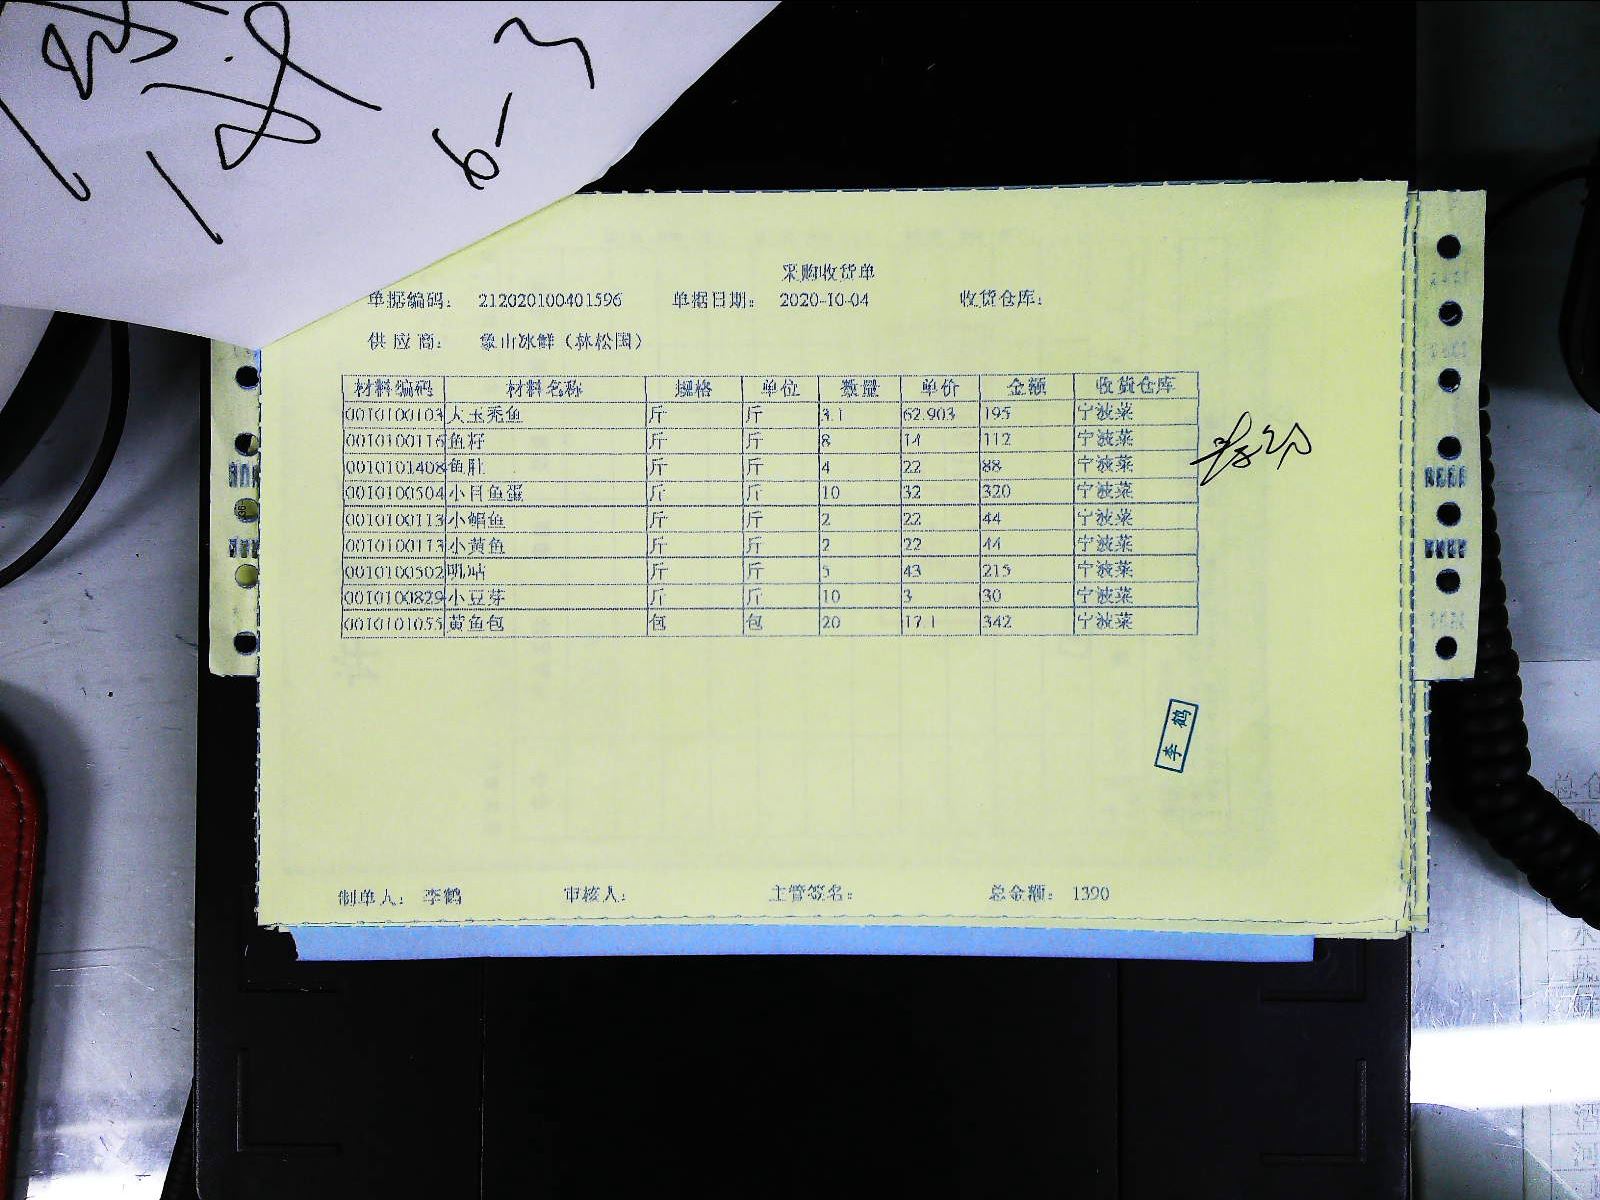 6-3
采购收货单
单据编码： 212020100401596 单据日期： 2020-10-04 收货仓库：
供应商： 象山冰鲜（林松国）
材料编码 材料名称 规格 单位 数量 单价 金额 收货仓库
0010100103 大玉秃鱼 斤 斤 3.1 62.903 195 宁波菜
0010100116 鱼籽 斤 斤 8 14 112 宁波菜
0010101408 鱼肚 斤 斤 4 22 88 宁波菜
0010100504 小目鱼蛋 斤 斤 10 32 320 宁波菜
0010100113 小鲳鱼 斤 斤 2 22 44 宁波菜
0010100113 小黄鱼 斤 斤 2 22 44 宁波菜
0010100502 斤 斤 5 43 215 宁波菜
0010100829 小豆芽 斤 斤 10 3 30 宁波菜
0010101055 黄鱼包 包 包 20 17.1 342 宁波菜
李鹤
制单人： 李鹤 审核人： 主管签名： 总金额： 1390